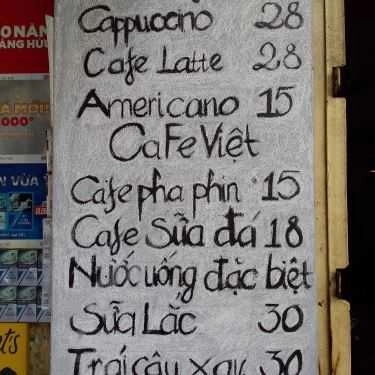 Cappuccino 28
Cafe Latte 28
Americano 15
CaFe Việt
Cafe pha phin 15
Cafe Sữa đá 18
Nước uống đặc biệt
Sữa Lắc 30
Trái cây xay 30